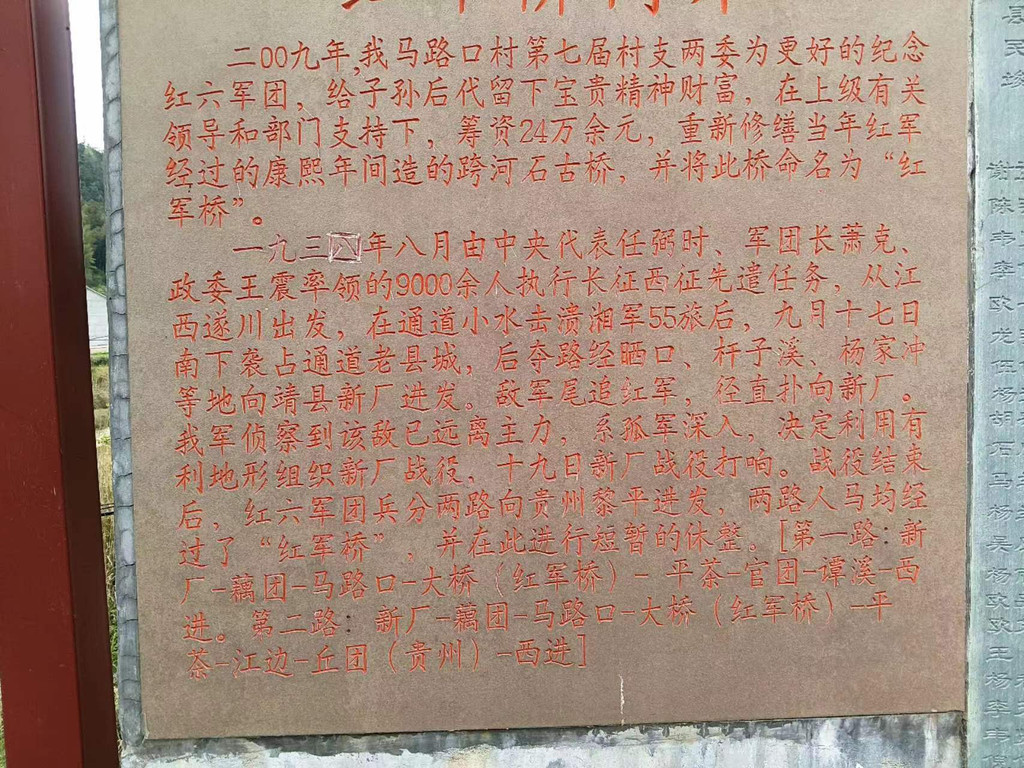 二00九年,我马路口村第七届村支两委为更好的纪念
红六军团，给子孙后代留下宝贵精神财富，在上级有关
领导和部门支持下，筹资24万余元，重新修缮当年红军
经过的康熙年间造的跨河石古桥，并将此桥命名为“红
军桥”。
一九三四年八月由中央代表任弼时、军团长萧克、
政委王震率领的9000余人执行长征西征先遣任务，从江
西遂川出发，在通道小水击溃湘军55旅后，九月十七日
南下袭占通道老县城，后夺路经晒口、杆子溪、杨家冲
等地向靖县新厂进发。敌军尾追红军，径直扑向新厂。
我军侦察到该敌已远离主力，系孤军深入，决定利用有
利地形组织新厂战役，十九日新厂战役打响。战役结束
后，红六军团兵分两路向贵州黎平进发，两路人马均经
过了“红军桥”，并在此进行短暂的休整。[第一路：新
厂-藕团-马路口-大桥（红军桥）-平茶-官团-谭溪-西
进。第二路：新厂-藕团-马路口-大桥（红军桥）-平
茶-江边-丘团（贵州）-西进]
县
民
埈
谢
陈
韦
李
欧
龙
伍
杨
胡
石
马
杨
吴
杨
欧
欧
王
杨
李
韦